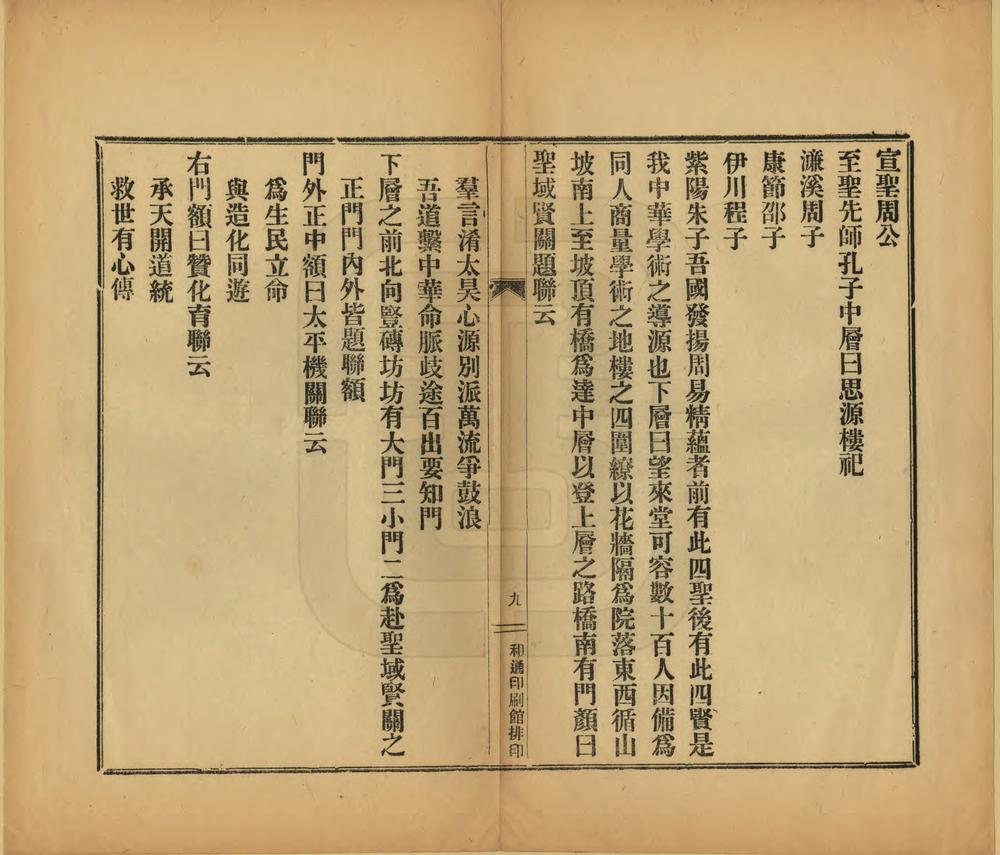 宣聖周公
至聖先師孔子中層曰思源樓祀
濂溪周子
康節邵子
伊川程子
紫陽朱子吾國發揚周易精蘊者前有此四聖後有此四賢是
我中華學術之導源也下層曰望來堂可容數十百人因備爲
同人商量學術之地樓之四圍繚以花牆隔爲院落東西循山
坡南上至坡頂有橋爲達中層以登上層之路橋南有門顏曰
聖域賢關題聯云
九
和通印刷館排印
羣言淆太昊心源別派萬流爭鼓浪
吾道繫中華命脈歧途百出要知門
下層之前北向豎磚坊坊有大門三小門二爲赴聖域賢關之
正門門內外皆題聯額
門外正中額曰太平機關聯云
爲生民立命
與造化同遊
右門額曰贊化育聯云
承天開道統
救世有心傳